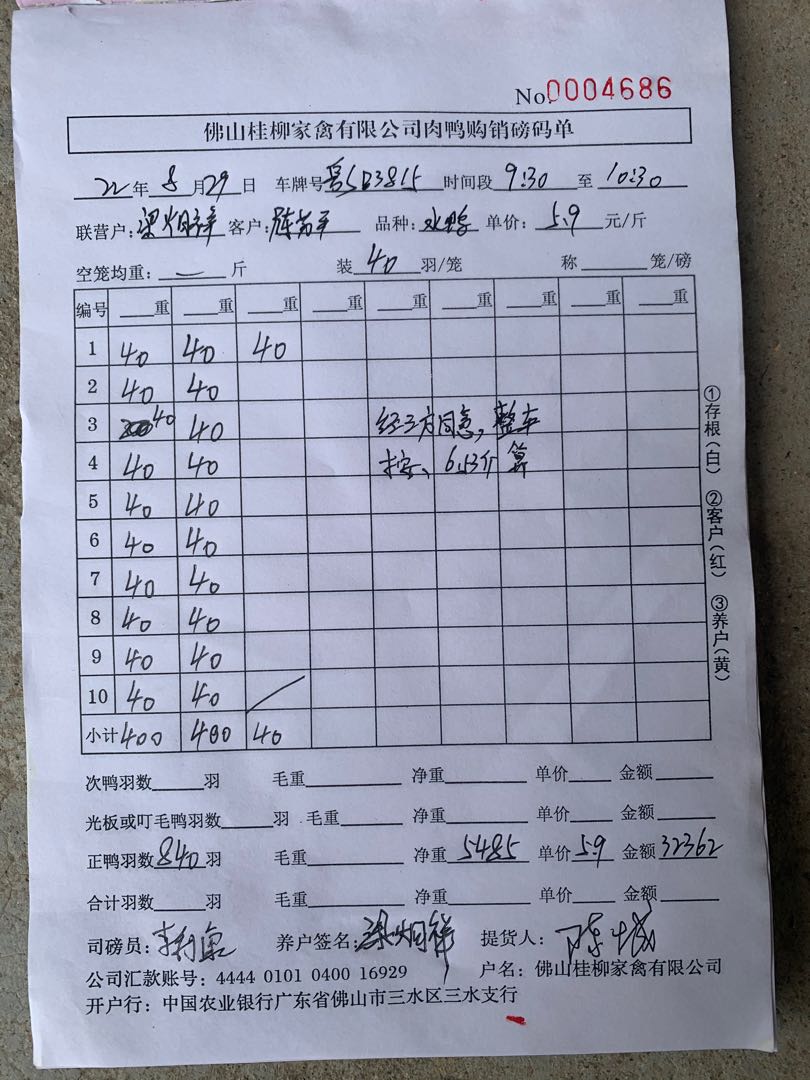 No.0004686
佛山桂柳家禽有限公司肉鸭购销磅码单
22年8月29日 车牌号 时间段9:30至10:30
联营户: 客户: 品种:水鸭 单价:5.9元/斤
空笼均重:斤 装40羽/笼 称笼/磅
编号 重 重 重 重 重 重 重 重 重
1 40 40 40
2 40 40
3 40 40 经三方同意,整车
4 40 40 按、 算
5 40 40
6 40 40
7 40 40
8 40 40
9 40 40
10 40 40
小计 400 400 40
次鸭羽数羽 毛重 净重 单价 金额
光板或叮毛鸭羽数羽 毛重 净重 单价 金额
正鸭羽数840羽 毛重 净重5485 单价5.9 金额32362
合计羽数羽 毛重 净重 单价 金额
司磅员: 养户签名: 提货人:
公司汇款账号:4444 0101 0400 16929 户名:佛山桂柳家禽有限公司
开户行:中国农业银行广东省佛山市三水区三水支行
①存根(白) ②客户(红) ③养户(黄)